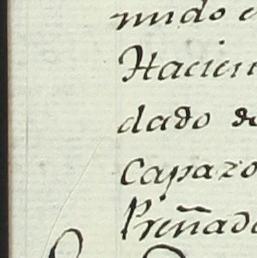 nido e
Hacien
dado de
Capazo
Preñado